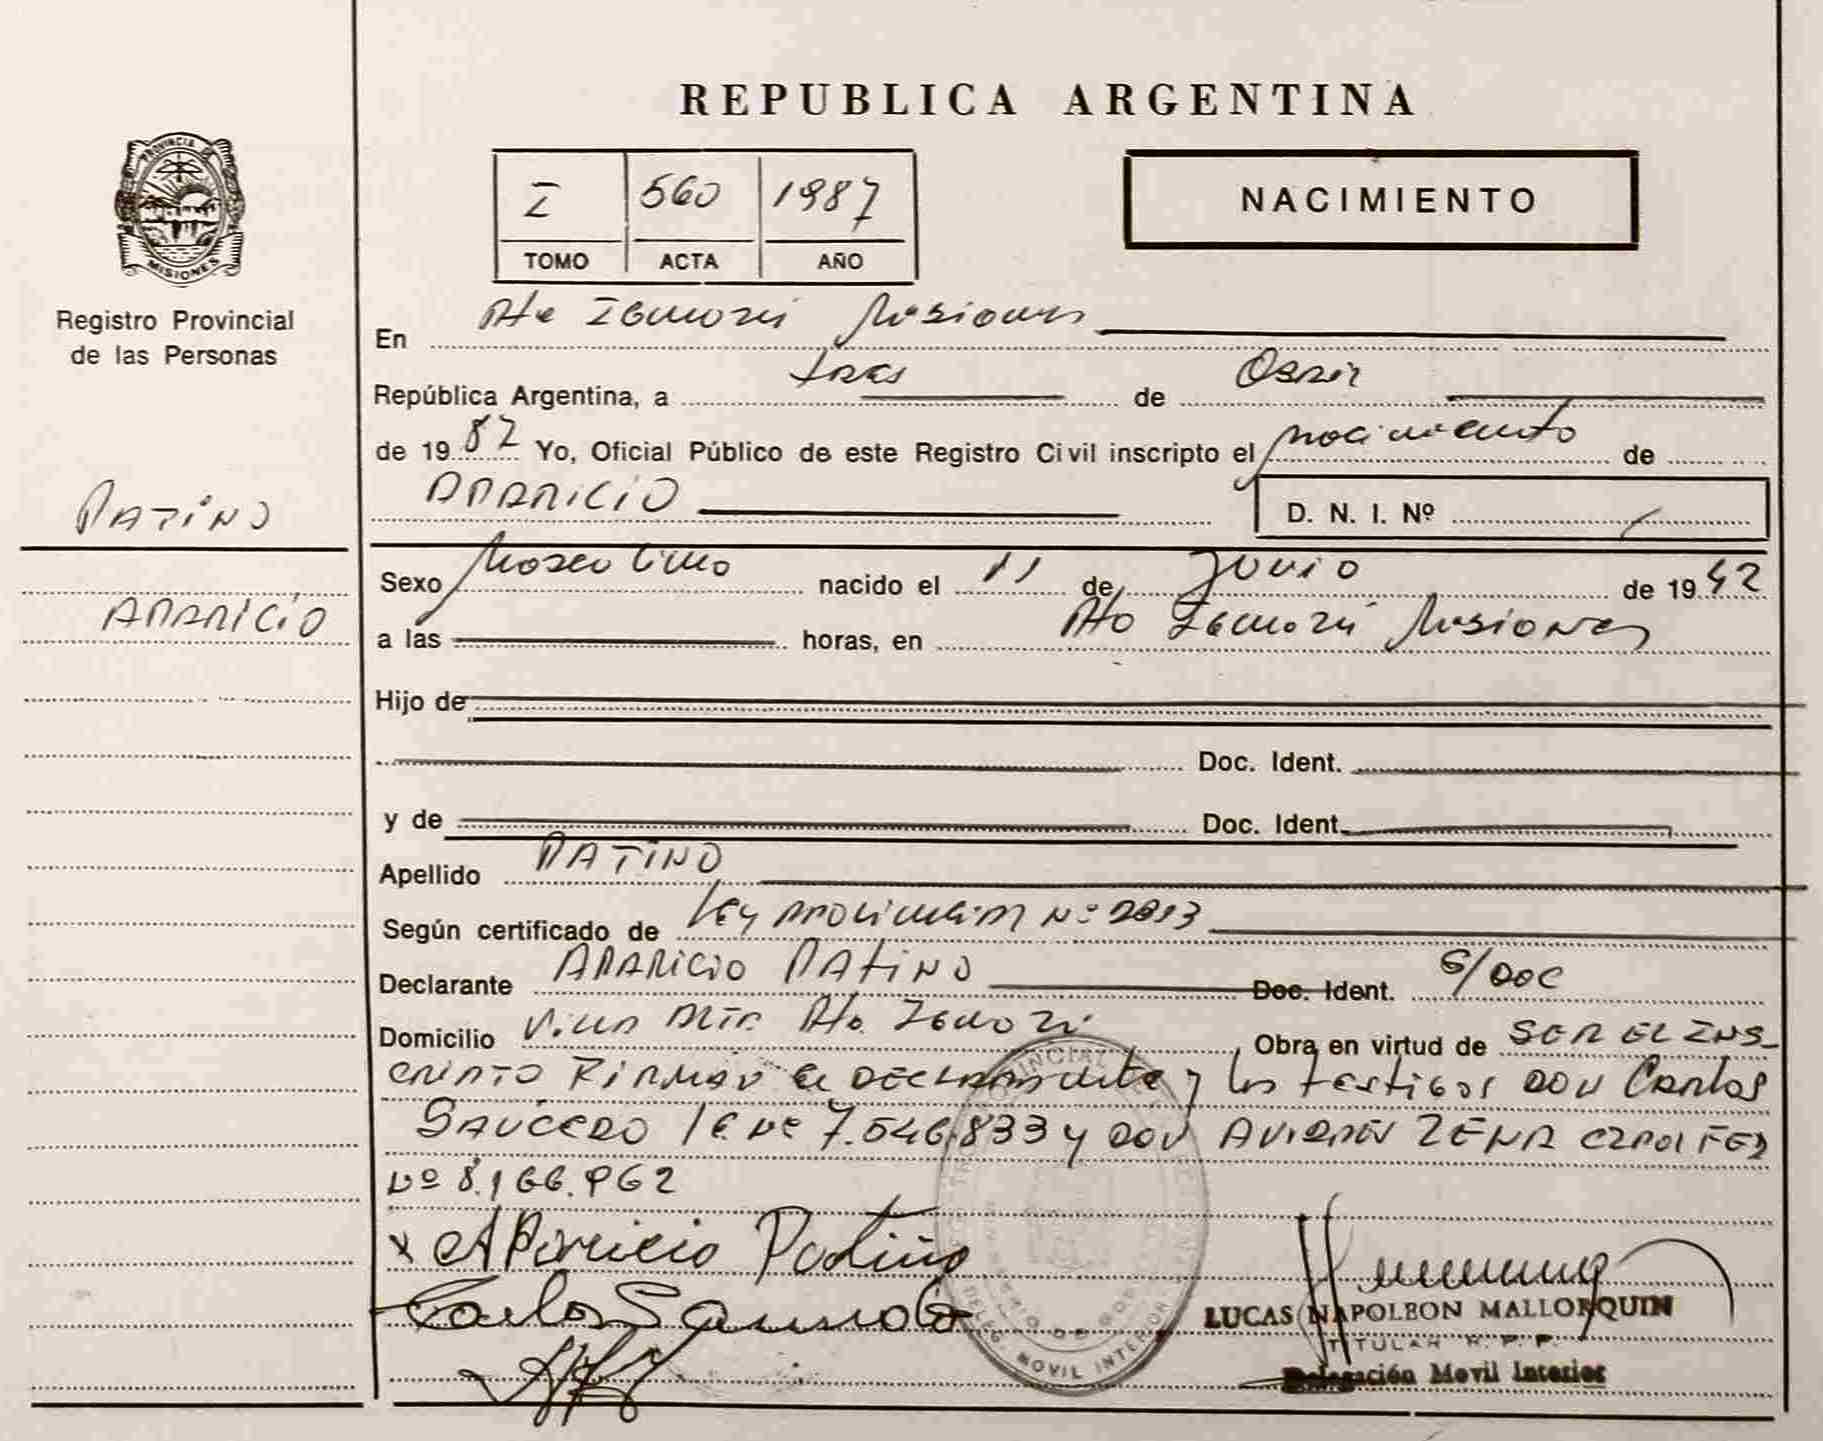 REPUBLICA ARGENTINA
PROVINCIA DE
MISIONES
Registro Provincial
de las Personas
I 560 1987
TOMO ACTA AÑO
NACIMIENTO
En Pto Iguazú Misiones
República Argentina, a tres de
de 19 87 Yo, Oficial Público de este Registro Civil inscripto el nacimiento de
PATIÑO
APARICIO
D. N. I. Nº
Sexo Masculino nacido el 11 de Junio de 19 42
APARICIO
a las horas, en Pto Iguazú Misiones
Hijo de
Doc. Ident.
y de Doc. Ident.
Apellido PATIÑO
Según certificado de Ley Provincial Nº 2813
Declarante APARICIO PATIÑO Doc. Ident. S/DOC
Domicilio Villa Pto. Iguazú Obra en virtud de SER EL INS-
CRIPTO FIRMAN el DECLARANTE y los testigos DON Carlos
SAUCEDO LE Nº 7.546.833 y DON
Nº 8.166.962
x Aparicio Patiño
Carlos Saucedo
DELEG. MOVIL INTERIOR
LUCAS NAPOLEON MALLORQUIN
TITULAR R. P. P.
Delegación Movil Interior